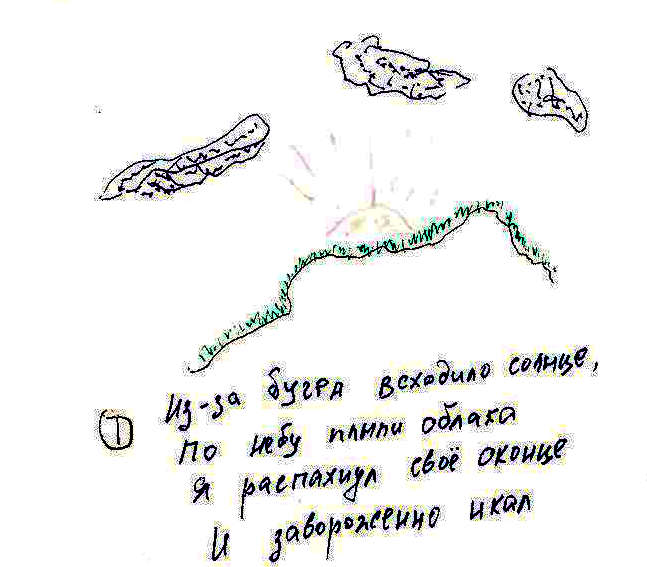 Из-за бугра всходило солнце,
По небу плыли облака
① Я распахнул своё оконце
И заворожённо икал